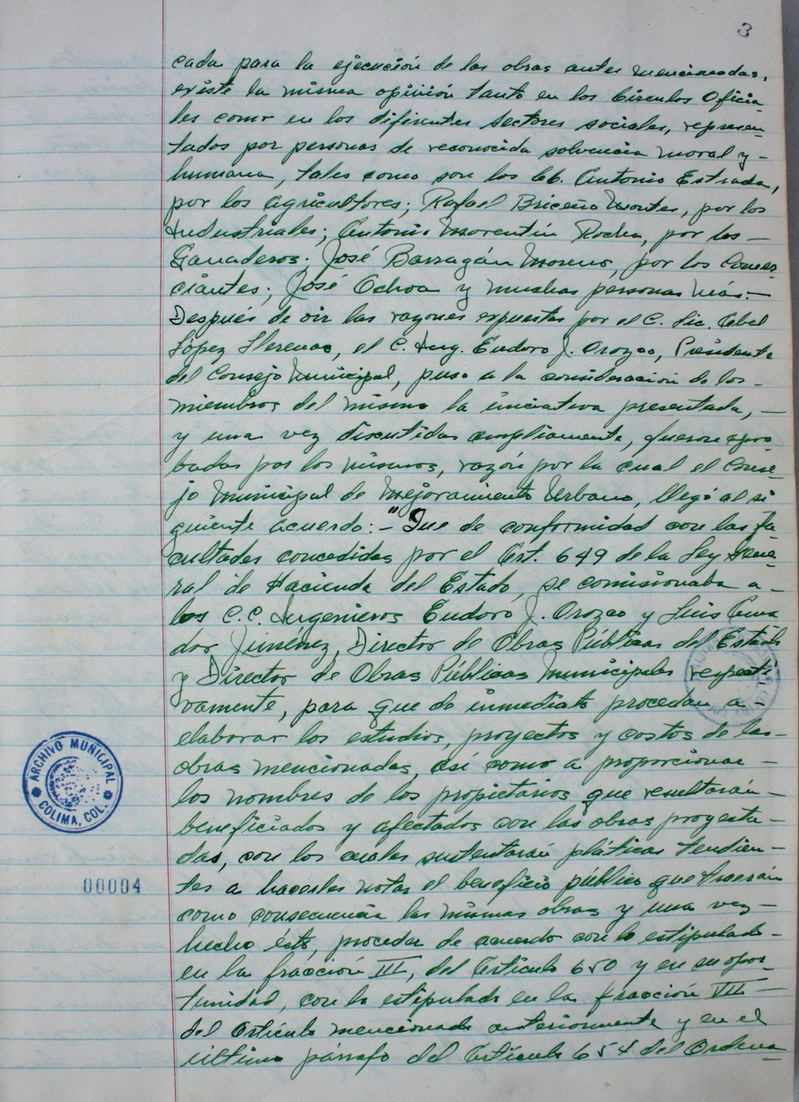 3
cada para la ejecución de las obras antes mencionadas,
existe la misma opinión tanto en los Círculos Oficia
les como en los diferentes sectores sociales, represen
tados por personas de reconocida solvencia moral y-
humana, tales como son los CC. Antonio Estrada,
por los agricultores; Rafael Briceño Montes, por los
Industriales; Antonio Morentín Rocha, por los-
Ganaderos. José Barragán Moreno, por los Comer
ciantes; José Ochoa y muchas personas más.-
Después de oir las razones expuestas por el C. Lic. Abel
López Llerenas, el C. Ing. Eudoro J. Orozco, Presidente
del Consejo Municipal, puso a la consideración de los-
miembros del mismo la iniciativa presentada,-
y una vez discutidas ampliamente, fueron apro
badas por los mismos, razón por la cual el Conse
jo Municipal de Mejoramiento Urbano, llegó al si
guiente acuerdo:-"Que de conformidad con las fa
cultades concedidas por el Art. 649 de la Ley Gene
ral de Hacienda del Estado, se comisionaba a-
los C.C. Ingenieros Eudoro J. Orozco y Luis
dor Jiménez, Director de Obras Públicas del Estado
y Director de Obras Públicas Municipales respecti
vamente, para que de inmediato procedan a-
elaborar los estudios, proyectos y costos de las-
obras mencionadas, así como a proporcionar-
los nombres de los propietarios que resultarán-
beneficiados y afectados con las obras proyecta-
das, con los cuales sustentarán pláticas tendien-
tes a hacerles notar el beneficio público que traerán
como consecuencia las mismas obras y una vez-
hecho ésto, proceder de acuerdo con lo estipulado-
en la fracción III, del Artículo 650 y en su opor-
tunidad, con lo estipulado en la fracción VIII-
del Artículo mencionado anteriormente y en el
último párrafo del Artículo 654 del Ordena
ARCHIVO MUNICIPAL
COLIMA, COL.
00004